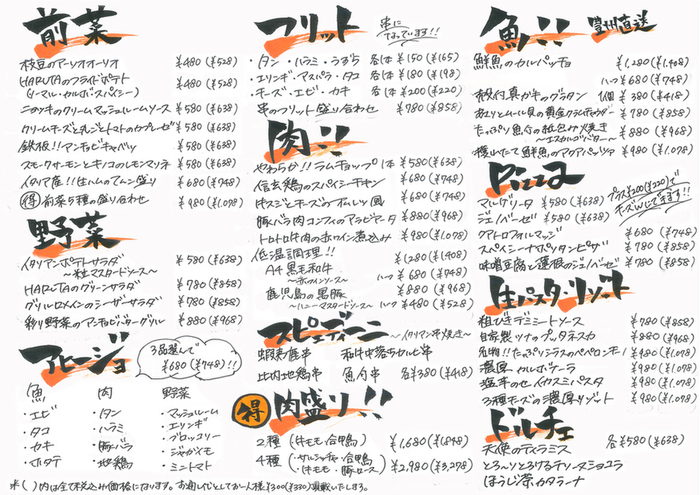 前菜
枝豆のアーリオオーリオ ¥480(¥528)
HARUTAのフライドポテト ¥480(¥528)
(ノーマル・カルボ・スパイシー)
ニョッキのクリームマッシュルームソース ¥580(¥638)
クリームチーズと丸ごとトマトのカプレーゼ ¥580(¥638)
鉄板!!アンチョビキャベツ ¥580(¥638)
スモークサーモンとキノコのレモンマリネ ¥580(¥638)
イタリア産!!生ハムのてんこ盛り ¥680(¥748)
得 前菜5種の盛り合わせ ¥980(¥1,078)
野菜
イタリアンポテトサラダ ¥580(¥638)
〜粒マスタードソース〜
HARUTAのグリーンサラダ ¥780(¥858)
グリルロメインのシーザーサラダ ¥780(¥858)
彩り野菜のアンチョビバターグリル ¥880(¥968)
アヒージョ
3品選んで
¥680(¥748)!!
魚
・エビ
・タコ
・カキ
・ホタテ
肉
・タン
・ハラミ
・豚バラ
・地鶏
野菜
・マッシュルーム
・エリンギ
・ブロッコリー
・ジャガイモ
・ミニトマト
フリット
串に
なっています!!
・タン・ハラミ・うずら 各1本 ¥150(¥165)
・エリンギ・アスパラ・タコ 各1本 ¥180(¥198)
・チーズ・エビ・カキ 各1本 ¥200(¥220)
串のフリット盛り合わせ ¥780(¥858)
肉!!
やわらか!!ラムチョップ 1本 ¥580(¥638)
信玄鶏のスパイシーチキン ¥680(¥748)
牛スジとチーズのオムレツ風 ¥680(¥748)
豚バラ肉コンフィのアラビアータ ¥880(¥968)
トロトロ牛肉の赤ワイン煮込み ¥980(¥1,078)
低温調理!!
A4黒毛和牛 ¥1,280(¥1,408)
〜赤ワインソース〜 ハーフ ¥680(¥748)
鹿児島の黒豚 ¥880(¥968)
〜ハニーマスタードソース〜 ハーフ ¥480(¥528)
スピエディーニ 〜イタリアン串焼き〜
蝦夷鹿串 和牛中落ちカルビ串
比内地鶏串 魚介串 各¥380(¥418)
得 肉盛り!!
2種 (牛モモ・合鴨) ¥1,680(¥1,848)
4種 (・サルシッチャ・合鴨 ・牛モモ・豚ロース) ¥2,980(¥3,278)
魚!! 豊州直送
鮮魚のカルパッチョ ¥1,280(¥1,408)
ハーフ ¥680(¥748)
殻付真ガキのグラタン 1個 ¥380(¥418)
¥780(¥858)
たっぷり魚介の紙包み焼き ¥880(¥968)
〜エスカルゴバター〜
鮮魚のアクアパッツァ ¥980(¥1,078)
Pizza
プラス¥200(¥220)で
チーズWにできます!!
マルゲリータ ¥580(¥638)
ジェノベーゼ ¥580(¥638)
クアトロフォルマッジ ¥680(¥748)
スパイシーナポリタンピザ ¥780(¥858)
味噌豆腐と蓮根のジェノベーゼ ¥780(¥858)
生パスタ・リゾット
粗びきデミミートソース ¥780(¥858)
自家製ツナのプッタネスカ ¥880(¥968)
名物!!たっぷりシラスのペペロンチーノ ¥980(¥1,078)
濃厚カルボナーラ ¥980(¥1,078)
塩辛のセイカスミパスタ ¥980(¥1,078)
3種チーズの濃厚リゾット ¥980(¥1,078)
ドルチェ
天使のティラミス 各¥580(¥638)
とろ〜りとろけるテリーヌショコラ
ほうじ茶カタラーナ
*( )内は全て税込み価格になります。お通し代としてお一人様¥300(¥330)頂戴いたします。